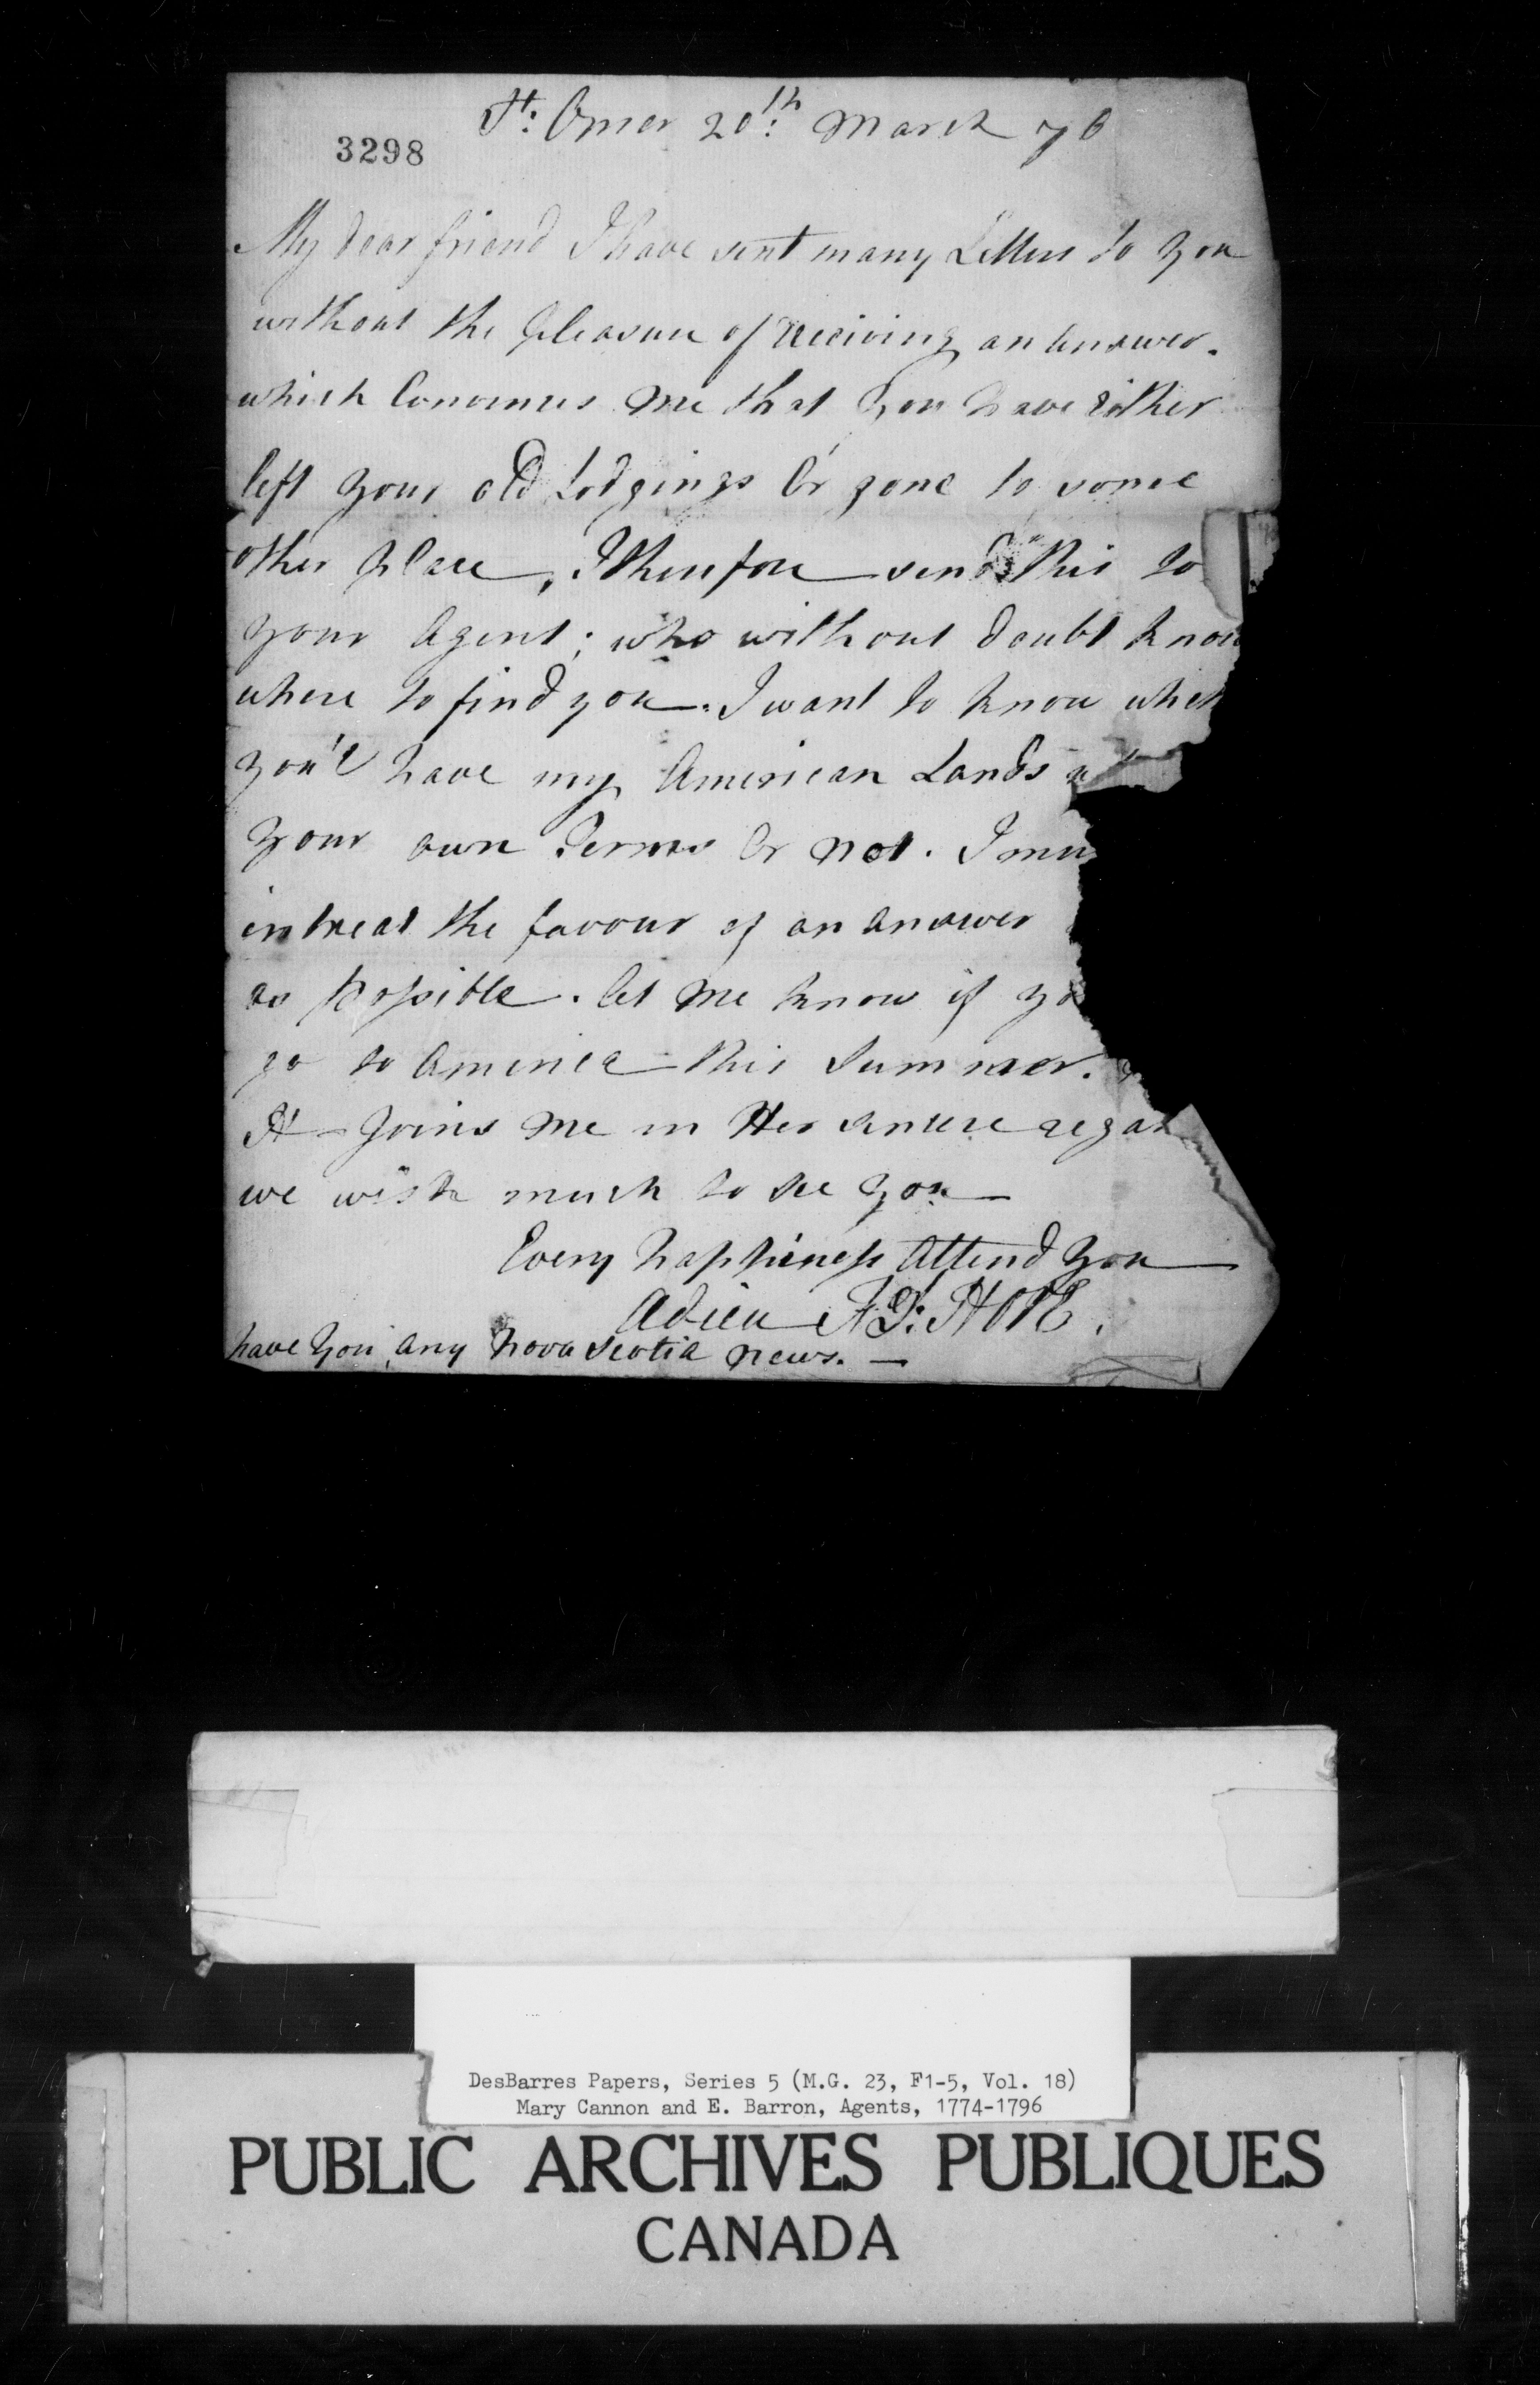 St: Omer 20th: March 76
3298
My dear friend I have sent many Letters to you
without the pleasure of receiving an answer.
which Convinces me that you have either
left your old Lodgings Or gone to some
other place, I therefore send this to
your agent; who without doubt know
where to find you. I want to know whet
you'l have my American Lands a
your own Terms Or not. I mu
intreat the favour of an answer
as possible. let me know if yo
go to America this Summer.
H— joins me in Her sincere regar
we wish much to see you—
Every happiness attend you—
Adieu
have you any Nova Scotia news. —
DesBarres Papers, Series 5 (M.G. 23, F1-5, Vol. 18)
Mary Cannon and E. Barron, Agents, 1774-1796
PUBLIC ARCHIVES PUBLIQUES
CANADA